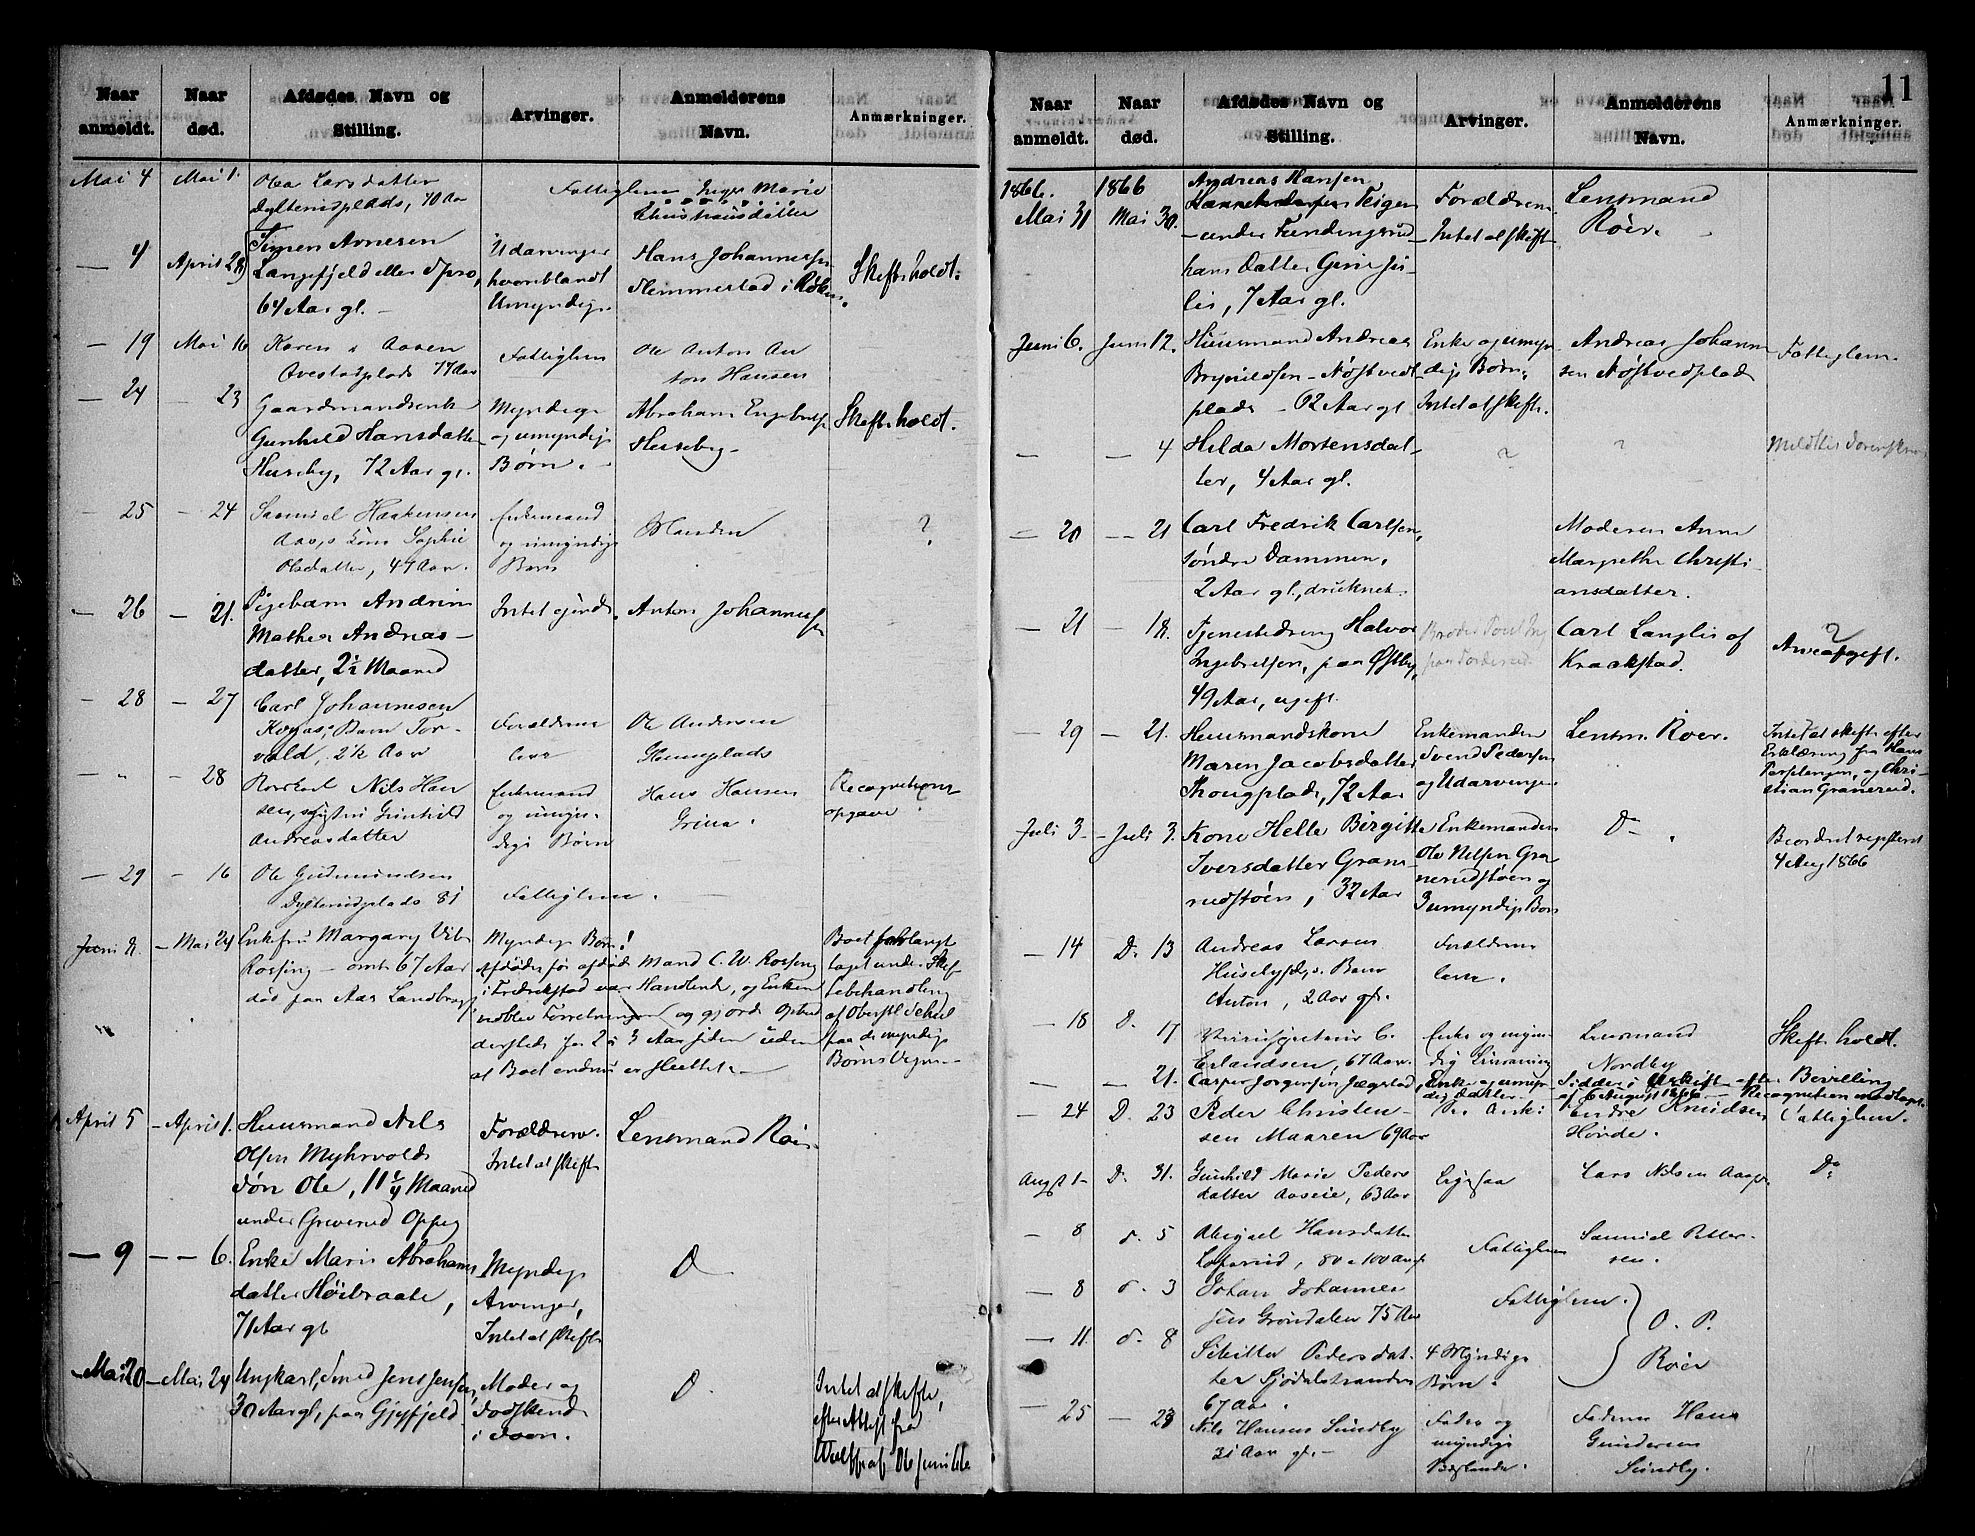 Naar anmeldt.
Naar død.
Afdødes Navn og Stilling.
Arvinger.
Anmelderens Navn.
Anmærkninger.
Mai 4
Mai 1.
Olea Larsdatter
plads, 70 Aar
Fattiglem
Inger Marie
Christiansdatter
— 4
April 28
Simen Arnesen
Langefjeld eller Spro,
64 Aar gl. —
Udarvinger
hvoriblandt
Umyndige
Hans Johannessen
Hemmestad i Røken.
Skifte holdt.
— 19
Mai 16
Karen Aasen
plads 77 Aar
Fattiglem
Ole Anton An
ton Hansen
— 24
— 23
Gaardmandsenke
Gunhild Hansdatter
Huseby, 72 Aar gl.
Myndige
og umyndige
Børn. —
Abraham Engebretsen
Huseby —
Skifte holdt.
— 25
— 24
Samuel Haakensen
Aas, Kone Sophie
Olsdatter, 47 Aar.
Enkemand
og umyndige
Børn
Manden
?
— 26
— 21.
Pigebarn Andrine
Mathea Andreas-
datter, 2½ Maaned
Intet eiende.
Anton Johannessen
— 28
— 27
Carl Johannesen
Barn Tor-
vald, 2½ Aar
Forældrene
leve
Ole Andersen
plads
— "
— 28
Nils Han
sen, Gunhild
Andreasdatter
Enkemand
og umyn-
dige Børn
Hans Hansen
Grina.
Recognitions
opgave
— 29
— 16
Ole Gudmundsen
plads 81
Fattiglem.
—
Juni 2.
— Mai 24
Enkefru Margary Vibe
Rossing — omtr. 67 Aar
død paa Aas Landbrugs
Myndige Børn!
Afdødes før afdøde Mand C. W. Rossing
i Fredrikstad var Handlende, og Enken
vedblev Forretningen og gjorde Opbud
dersteds for 2 à 3 Aar siden uden
at Boet endnu er sluttet. —
Boet forlangt
taget under Skif
tebehandling
af Oberstl. Scheel
paa de myndige
Børns Vegne —
April 5
— April 1.
Huusmand Nils
Olsen Myhrvolds
Søn Ole, 11¼ Maaned
under Greverud Oppeg
Forældrene.
Intet at skifte
Lensmand Røer
— 9
— — 6.
Enke Marie Abrahams
datter Høibraate,
71 Aar gl
Myndige
Arvinger,
Intet at skifte
D
— Mai 20
— Mai 24
Ungkarl, Smed Jens Jensen,
30 Aar gl, paa Gjeffjeld
Moder og
Sødskende
i Soon.
D.
Intet at skifte,
efter Attest fra
11
Naar anmeldt.
Naar død.
Afdødes Navn og Stilling.
Arvinger.
Anmelderens Navn.
Anmærkninger.
1866.
Mai 31
1866
Mai 30.
Andreas Hansen
Teigen
under Fundingsrud
hans Datter Gine Ju-
lie, 7 Aar gl.
Forældrene
Intet at skifte
Lensmand
Röer.
Juni 6.
Juni 12.
Huusmand Andreas
Brynildsen Nøstvedt
plads — 62 Aar gl
Enke og umyn
dige Børn,
Intet at skifte.
Andreas Johann
sen Nøstvedplads
Fattiglem.
—
— 4
Hilda Mortensdat-
ter, 4 Aar gl.
?
?
— 20
— 21
Carl Fredrik Carlsen,
søndre Dammen,
2 Aar gl., druknet.
Moderen Anne
Margrethe Christi-
ansdatter.
— 21
— 18.
Tjenestedreng Halvor
Ingebretsen, paa Østby,
49 Aar, ugift.
Broder Poul
paa
Carl Langlie af
Kraakstad.
?
Arveafgift.
— 29
— 21.
Huusmandskone
Maren Jacobsdatter
Skougplads, 72 Aar
Enkemanden
Svend Pedersen
og Udarvinger
Lensm. Röer.
Intet at skifte efter
Erklæring fra Hans
og Chri-
stian Granerud.
Juli 3.
— Juli 3.
Kone Helle Birgitte
Iversdatter Grane-
rudstøen, 32 Aar
Enkemanden
Ole Nilsen Gra
nerudstøen og
3 umyndige Børn
Do
Beordret registreret
4 Aug 1866
— 14
D. 13
Andreas Larsen
Husebyeje. Barn
Anton, 2 Aar gl.
Forældrene
leve.
— 18
D. 17
C.
Erlandsen, 67 Aar.
Enke og umyn-
dig Livsarving
Lensmand
Nordby
Skifte holdt.
—
— 21.
Casper Jørgensen Jægstad,
Enke og umyn-
dig Datter —
Sidder i Uskiftet efter Bevilling
af 6 August 1866 — Recognition modtaget.
— 24
D. 23
Peder Christen-
sen Maaren 69 Aar
Endre Knudsen
Hønde.
Fattiglem.
Augst 1
D. 31.
Gunhild Marie Peders
datter Aaseie, 63 Aar
Ligesaa
Lars Nilsen
Do
— 8
d. 5
Abigael Hansdatter
80 à 100 Aar gl
Fattiglem
Samuel Petter-
sen.
— 8
d. 3
Johan Johannes
sen Grøndalen 75 Aar
Fattiglem.
O. P.
Röer
— 11.
d. 8
Pedersdat-
ter Fjødalstranden
67 Aar.
4 Myndige
Børn.
— 25
— 23
Nils Hansen Sundby
31 Aar gl. —
Fader og
myndige
Sødskende.
Faderen Hans
Gundersen
Sundby.